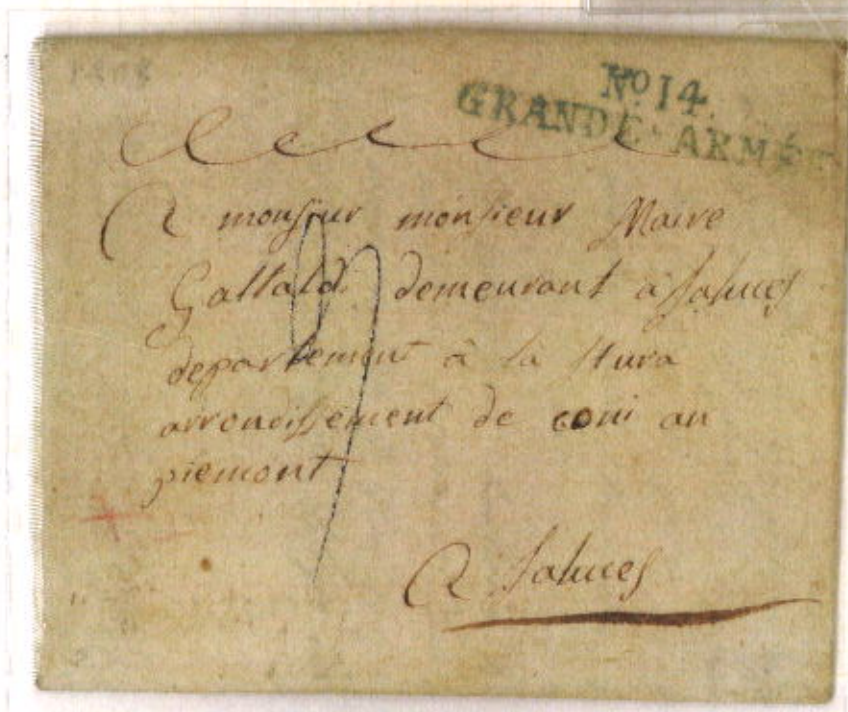 No 14.
GRANDE·ARMÉE
A monsieur monsieur Maire
Gallald demeurant à Saluces
departement à la Stura
arrondissement de coni an
piemont
A Saluces